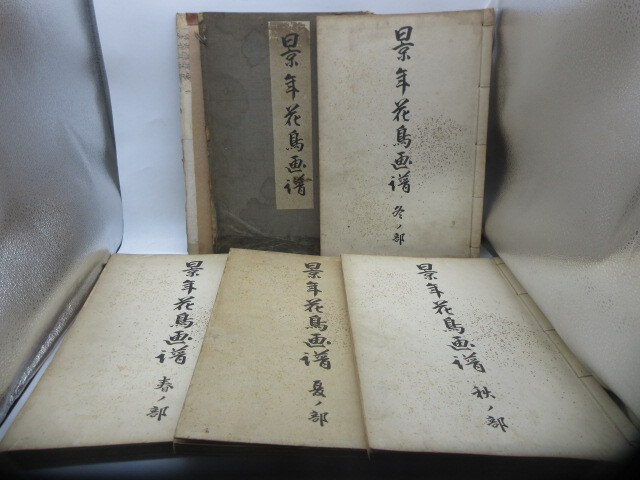 景年花鳥画譜
景年花鳥画譜
冬ノ部
景年花鳥画譜
春ノ部
景年花鳥画譜
夏ノ部
景年花鳥画譜
秋ノ部